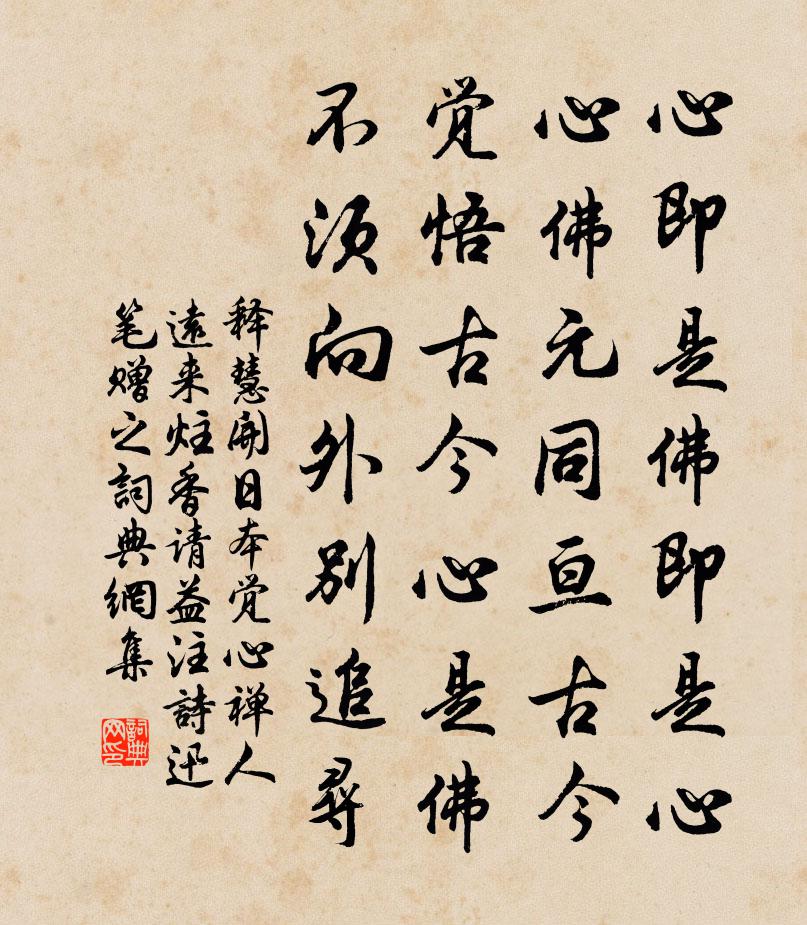 心即是佛即是心
心佛元同亘古今
觉悟古今心是佛
不须向外别追尋
释慧開日本觉心禅人
遠来炷香请益注詩迅
笔赠之詞典網集
詞典网印